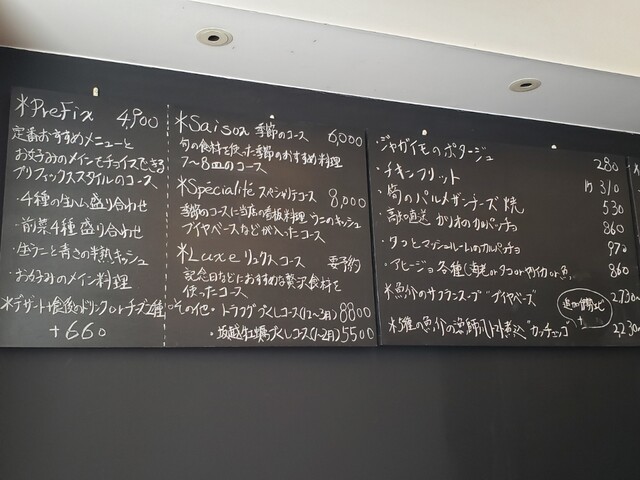 *PreFix 4,900
定番おすすめメニューと
お好みのメインをチョイスできる
プリフィックススタイルのコース
・4種の生ハム盛り合わせ
・前菜4種盛り合わせ
・生うにと青さの半熟キッシュ
・お好みのメイン料理
*デザート・食後のドリンク or チーズ2種
+660
*Saison 季節のコース 6,000
旬の食材を使った季節のおすすめ料理
7〜8皿のコース
*Spécialité スペシャリテコース 8,000
季節のコースに当店の看板料理 うにのキッシュ
ブイヤベースなどが入ったコース
*Luxe リュクスコース 要予約
記念日などにおすすめな贅沢食材を
使ったコース
○その他・トラフグづくしコース(12〜3月) 8800
・坂越牡蠣づくしコース(1〜2月) 5500
・ジャガイモのポタージュ 280
・チキンフリット 310
・筍のパルメザンチーズ焼 530
・高知直送 カツオのカルパッチョ 860
・タコとマッシュルームのカルパッチョ 970
・アヒージョ各種 860
*魚介のサフランスープ ブイヤベーズ 2,730
*5種の魚介の漁師風トマト煮込 カッチュッコ